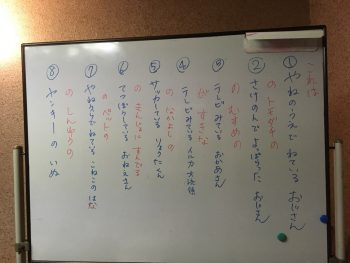 これは
①やねのうえで ねている おじさん
の トモダチの
②さけのんで よっぱらった おじさん
の むすめの
③テレビみている おかあさん
が すきな
④テレビみている イルカ大統領
の なかよしの
⑤サッカーしている りょうたくん
の きんじょに すんでる
⑥てつぼうしている おねえさん
の ペットの
⑦やねのうえでねている こねこのはな
の しんゆうの
⑧ヤンキーの いぬ